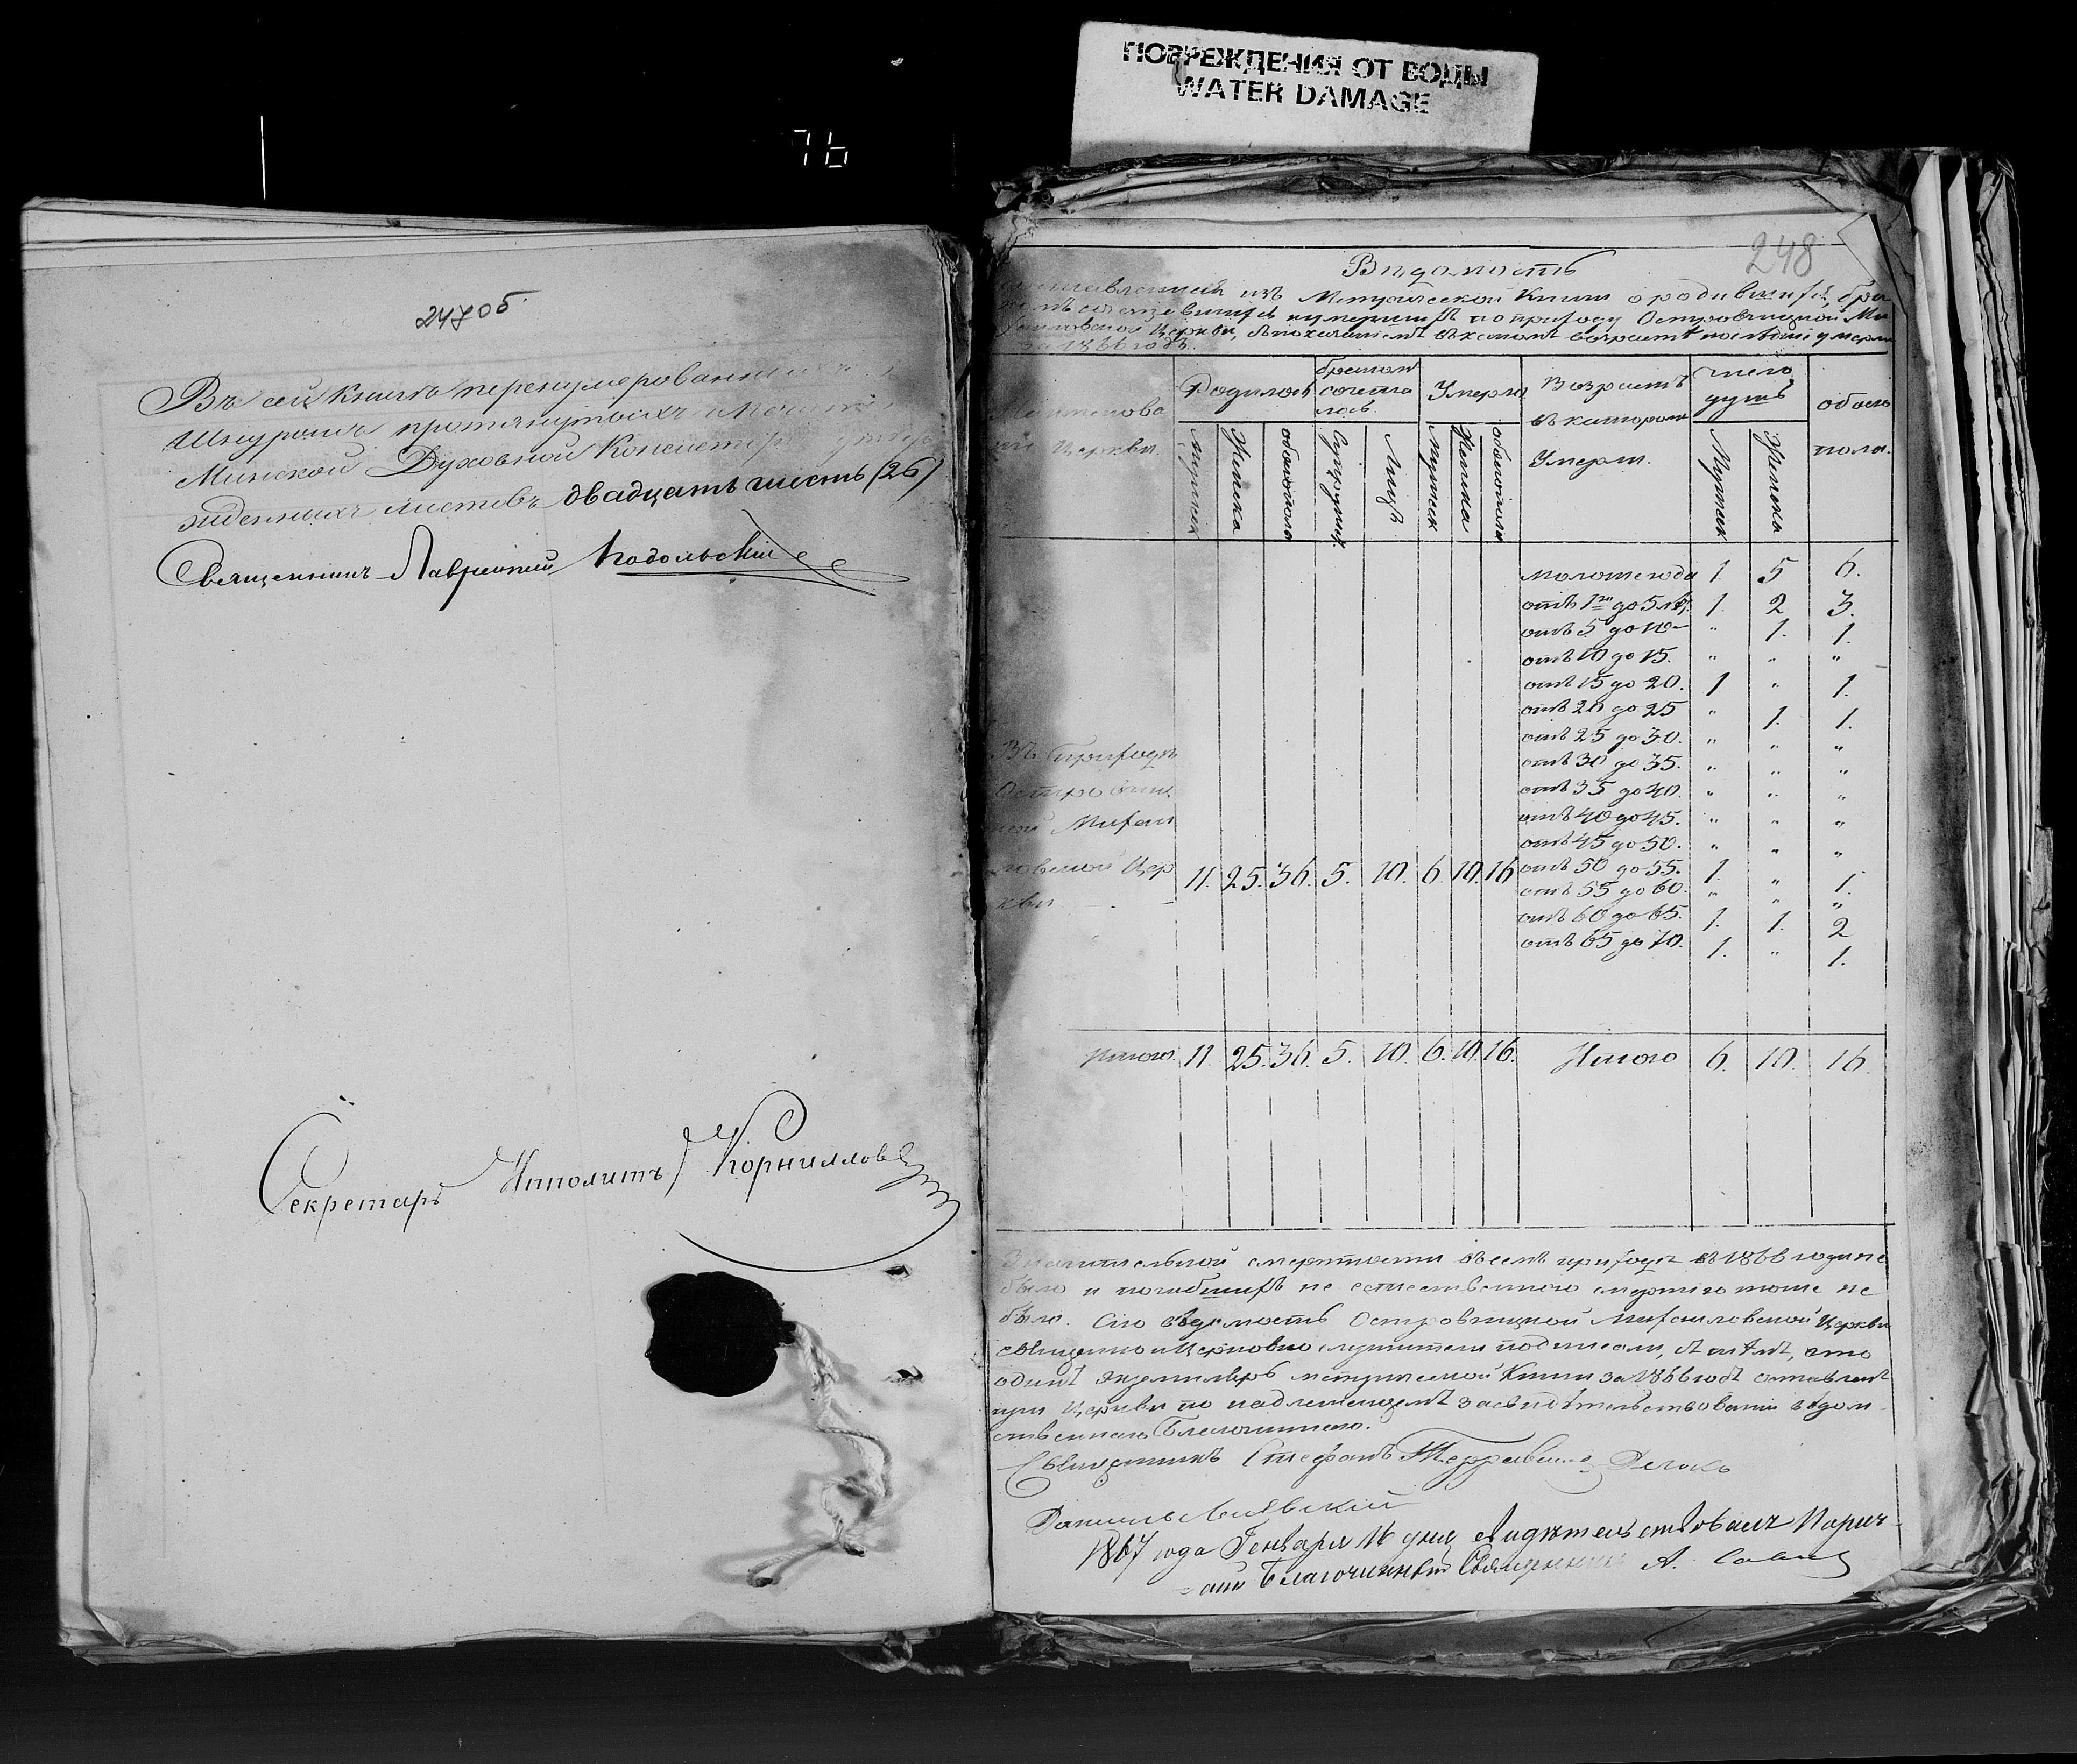 ПОВРЕЖДЕНИЯ ОТ ВОДЫ
WATER DAMAGE
76
247об
Въ сей книгѣ перенумерованныхъ
Шнуромъ протянутыхъ
Минской Духовной Консисторіи
жденныхъ листовъ двадцать шесть (26)
Священникъ Лаврентий Подольскій
Секретарь Ипполитъ Корнилловъ
248
Видомость
изъ Метрической Книги о родившихся, бра
умершихъ по приходу Островчицкой Ми
Церкви, съ показаніемъ въ какомъ возрастѣ послѣдніе умерли
за 1866 годъ.
Наименова
ніе Церкви.
Родилось
Мужеска
Женска
обоего пола
бракомъ
сочета
лось.
Супружествъ
Лицъ
Умерло
Мужеск
Женска
обоего пола
Возрастъ
въ которомъ
Умерли.
число
душъ
Мужеск
Женска
обоего
пола.
моложе года 1. 5 6.
отъ 1го до 5 лѣт. 1. 2 3.
отъ 5 до 10 " 1. 1.
отъ 10 до 15. " " "
отъ 15 до 20. 1 " 1.
отъ 20 до 25 " 1. 1.
отъ 25 до 30. " " "
отъ 30 до 35. " " "
отъ 35 до 40. " " "
отъ 40 до 45. " " "
отъ 45 до 50. " " "
отъ 50 до 55. 1. " 1.
отъ 55 до 60. " " "
отъ 60 до 65. 1. 1. 2
отъ 65 до 70. 1. " 1.
Въ приходѣ
Островчиц
кой Михаи
ловской Цер
кви
11. 25. 36. 5. 10. 6. 10. 16
Итого. 11. 25. 36. 5. 10. 6. 10. 16. Итого 6. 10. 16
Значительной смертности въ семъ приходѣ въ 1866 годи не
было и погибшихъ не естественною смертію тоже не
было. Сію вѣдомость Островчицкой Михаиловской Церкви
священно и Церковно служители подписали, съ тѣмъ, что
одинъ экземпляръ метрической Книги за 1866 годъ оставленъ
при Церкви по надлежащемъ засвидѣтельствованіи вѣдом
ственнаго Благочиннаго.
Священникъ Стефанъ
Даніилъ
1867 года Генваря 16 дня свидѣтельствовалъ Парич
скій Благочинный Священникъ А.